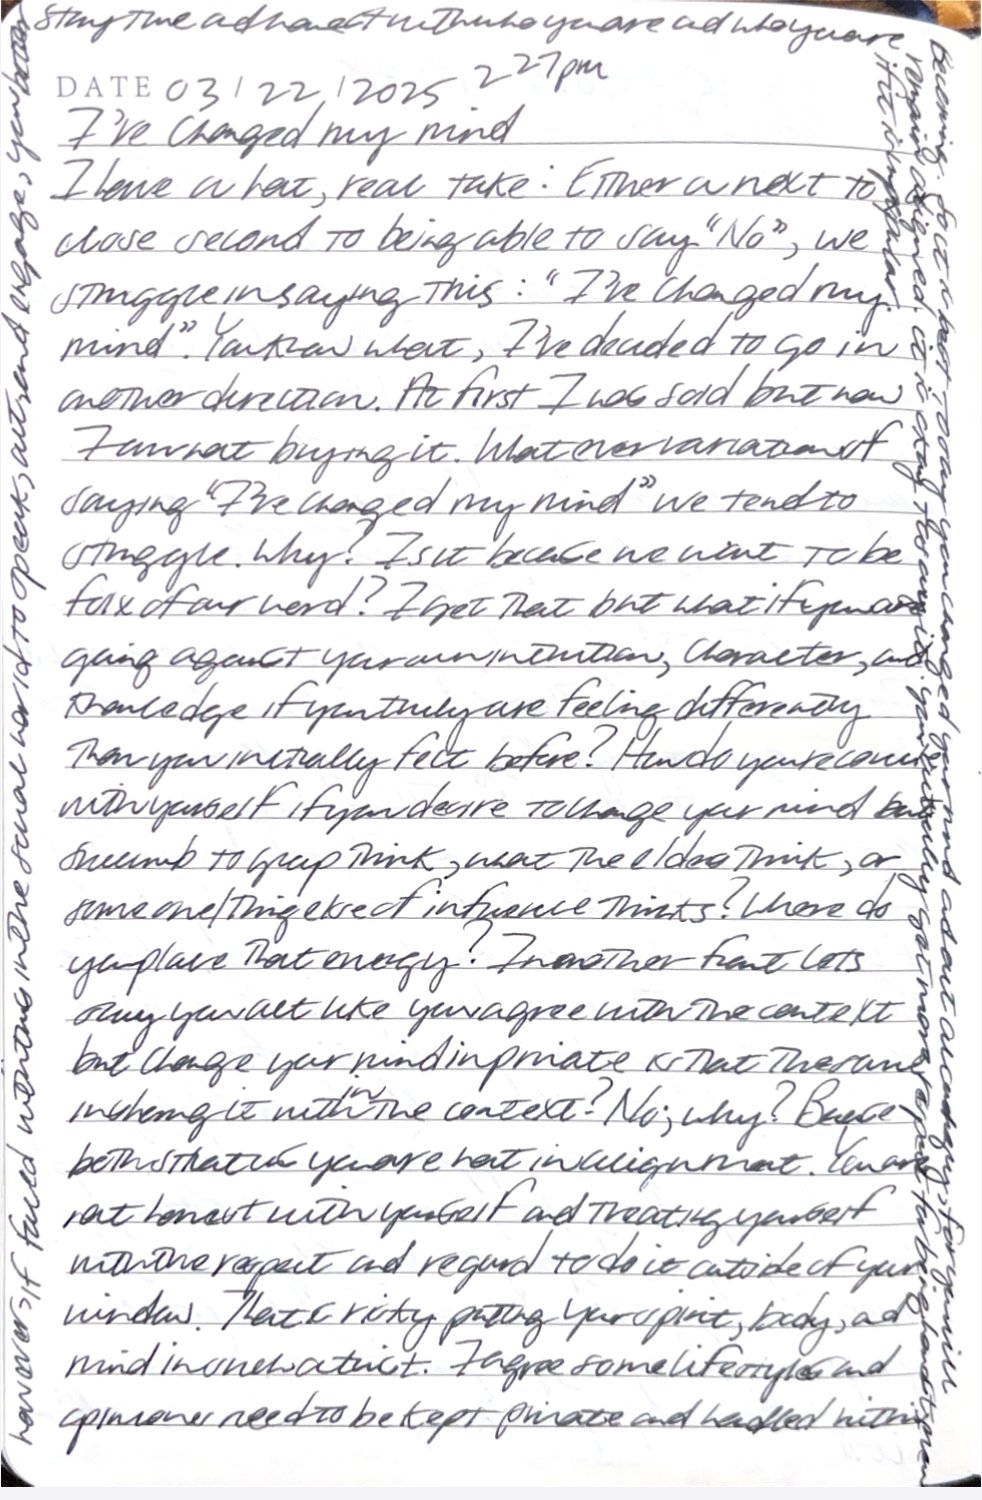 DATE 03/22/2025 2 27pm
I've changed my mind
I have a hot, real take: Either a next to
close second to being able to say "No", we
struggle in saying this: "I've changed my
mind". You know what, I've decided to go in
another direction. At first I was sold but now
I am not buying it. What ever variation of
saying "I've changed my mind" we tend to
struggle. Why? Is it because we want to be
folx of our word? I get that but what if you are
going against your own intuition, character, and
knowledge if you truly are feeling differently
than you initially felt before? How do you
with yourself if you desire to change your mind but
succumb to group think, what the elders think, or
someone/thing else of influence thinks? Where do
you place that energy? In another front lets
say you act like you agree with the context
but change your mind in private is that the same
in doing it within the context? No; why? Because
both you are not in alignment. You are
not honest with yourself and treating yourself
with the respect and regard to do it outside of your
window. That is risky putting your spirit, body, ad
mind in onewatrict. I agree some lifestyles and
opinions need to be kept private and handled within
however, if faced within the social world to speak, act and engage, your better
Stay true ad honest with who you are ad who you are
becoming. So it is best to say you changed your mind ad act accordingly; for you will
remain aligned. it is okay to you will actually get more respect for being honest
if it is unpopular